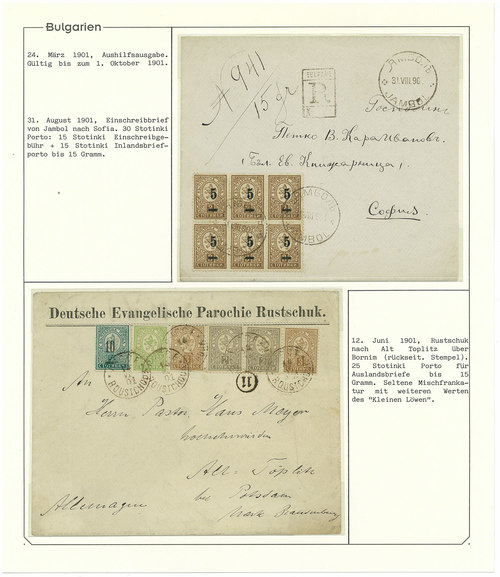 Bulgarien
24. März 1901, Aushilfsausgabe.
Gültig bis zum 1. Oktober 1901.
31. August 1901, Einschreibbrief
von Jambol nach Sofia. 30 Stotinki
Porto: 15 Stotinki Einschreibge-
bühr + 15 Stotinki Inlandsbrief-
porto bis 15 Gramm.
A 941
15 gr
R
31.VIII.90
JAMBOL
Господинъ
Петко В. КараИвановъ
(Бъл. Ев. Книжарница)
София
5 5 5
СТОТИНКИ СТОТИНКИ СТОТИНКИ
5 5 5
СТОТИНКИ СТОТИНКИ СТОТИНКИ
JAMBOL
Deutsche Evangelische Parochie Rustschuk.
10
ROUSTCHOUK
11
An
Herrn Pastor Hans Meyer
Alt-Töplitz
bei Potsdam
Mark Brandenburg
Allemagne
12. Juni 1901, Rustschuk
nach Alt Töplitz über
Bornim (rückseit. Stempel).
25 Stotinki Porto für
Auslandsbriefe bis 15
Gramm. Seltene Mischfranka-
tur mit weiteren Werten
des "Kleinen Löwen".